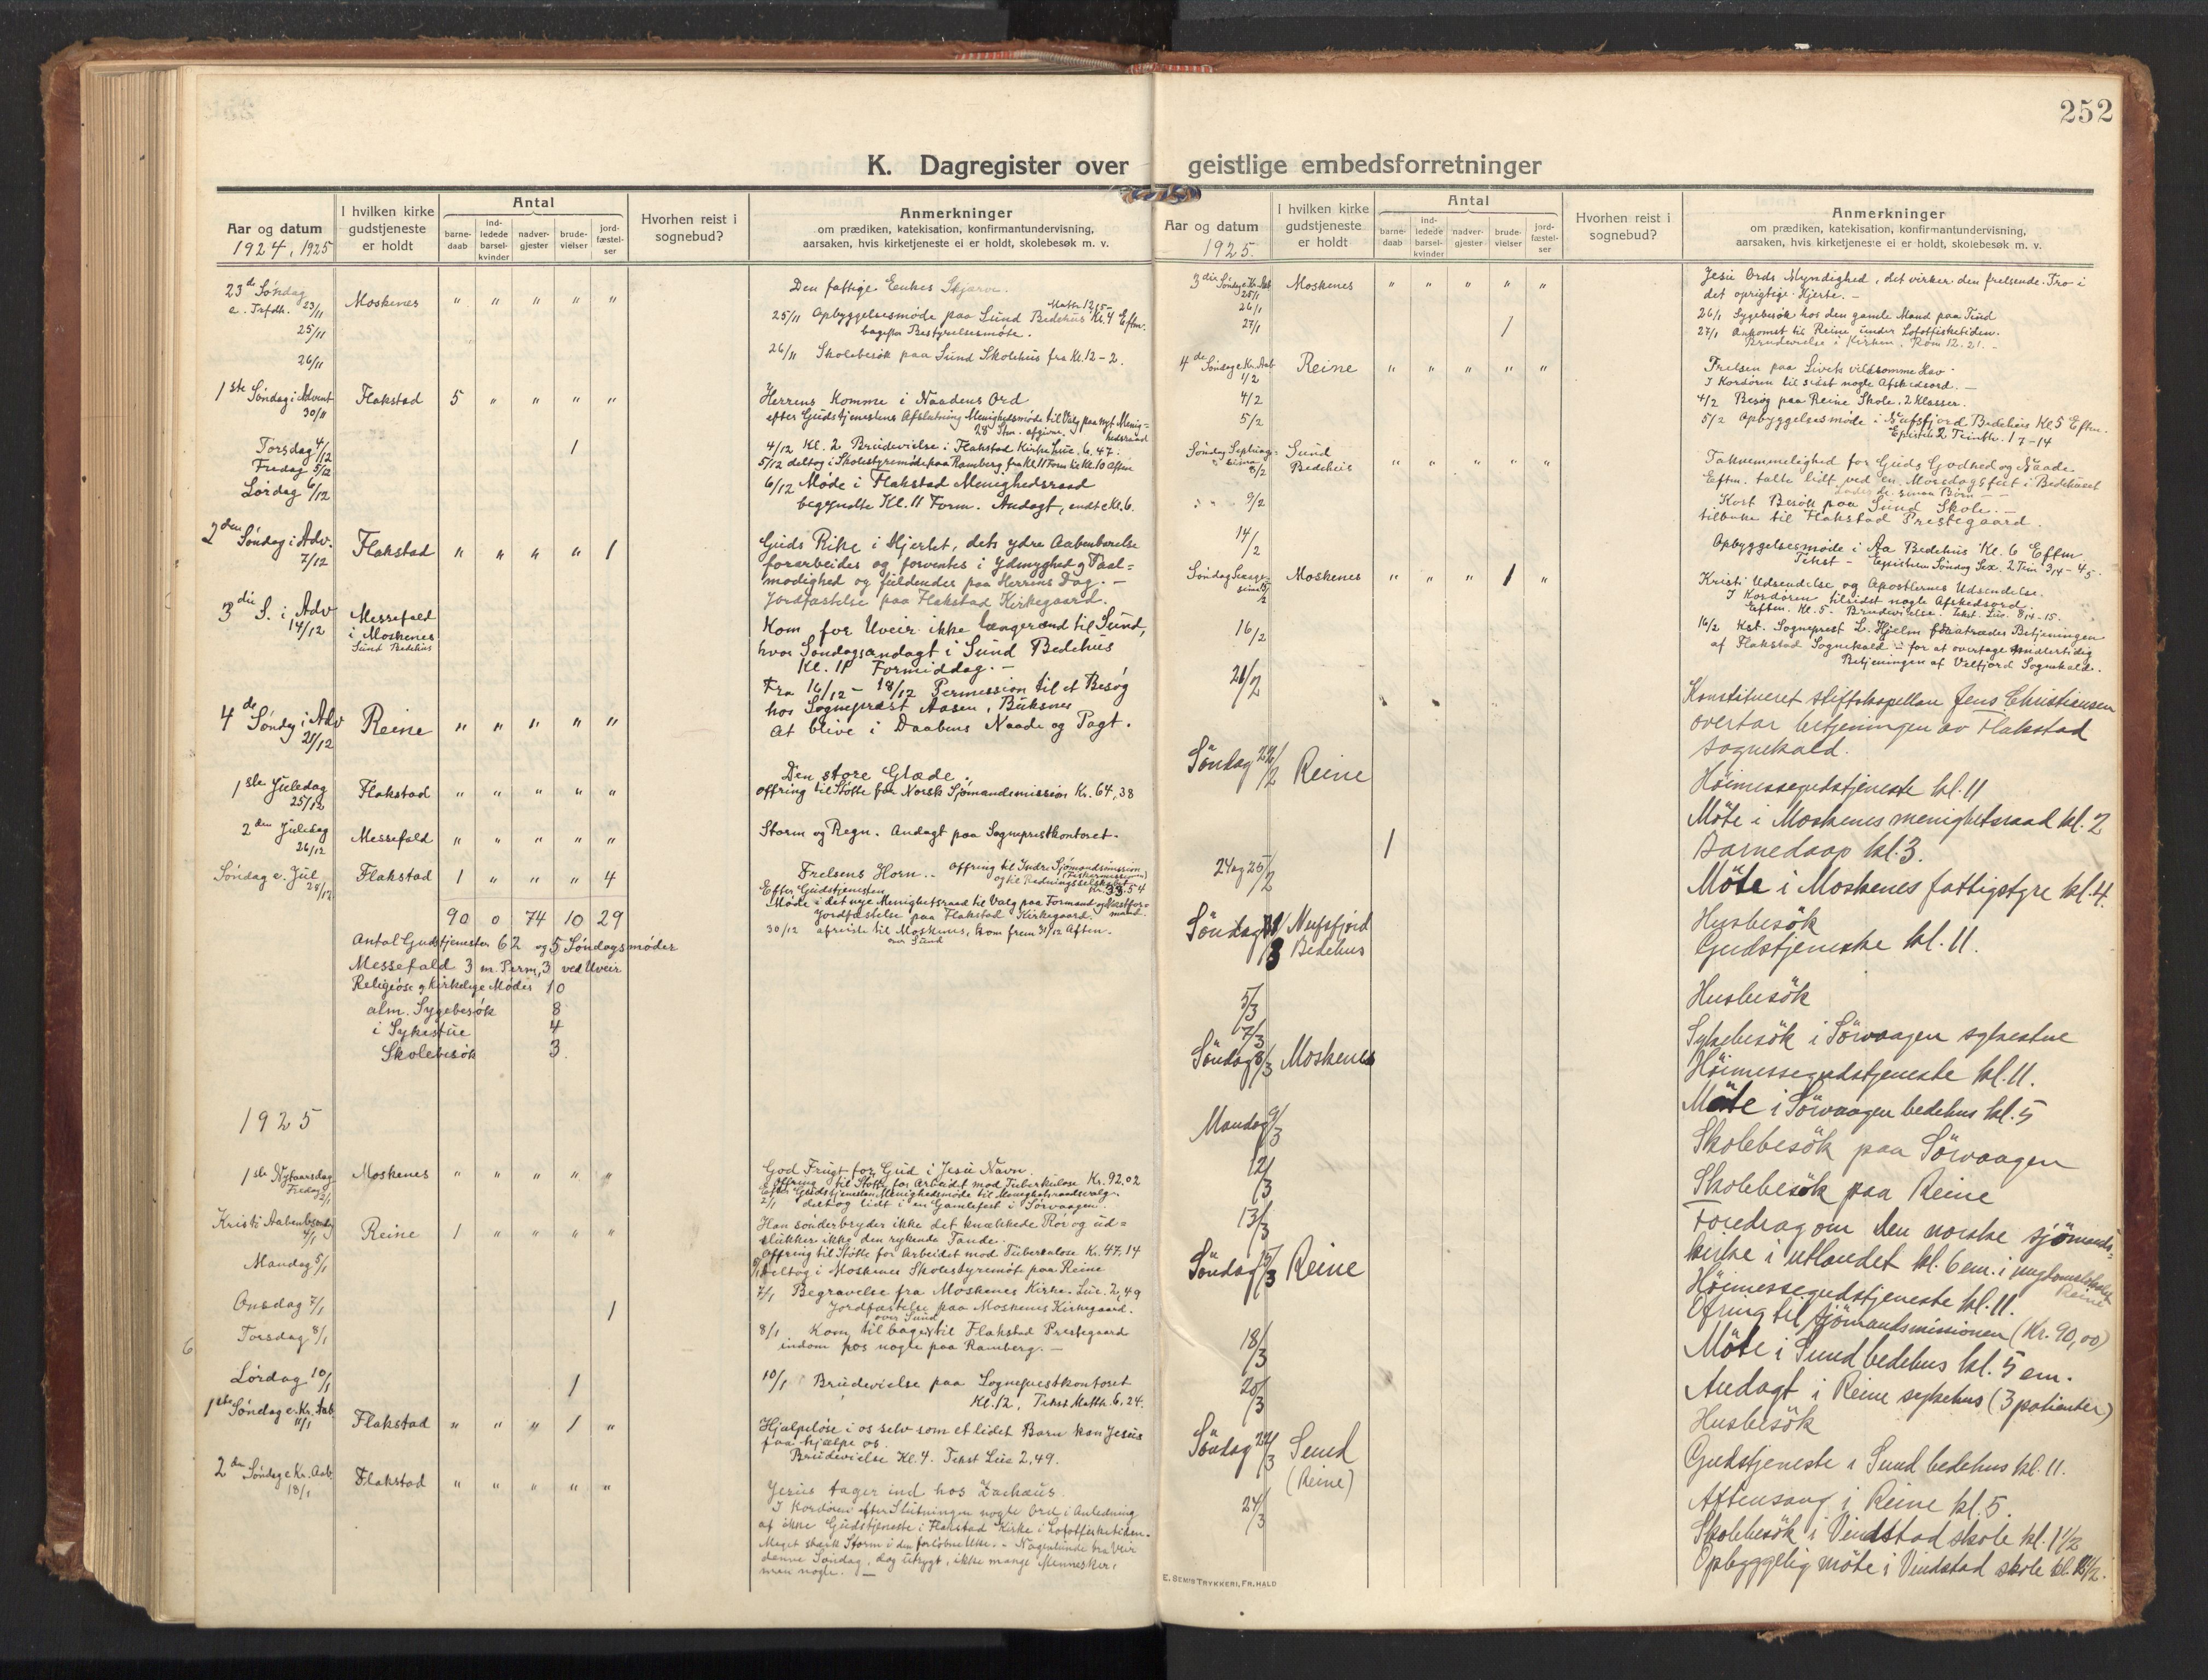 252
K. Dagregister over geistlige embedsforretninger
Aar og datum
1924, 1925
I hvilken kirke gudstjeneste er holdt
Antal
barne-daab
ind-ledede barsel-kvinder
nadver-gjester
brude-vielser
jord-fæstel-ser
Hvorhen reist i sognebud?
Anmerkninger
om prædiken, katekisation, konfirmantundervisning,
aarsaken, hvis kirketjeneste ei er holdt, skolebesøk m. v.
23de Søndag e. Trfdh. 23/11 Moskenes " " " " " Den fattige Enkes Skjærv.
25/11 25/11 Opbyggelsesmøde paa Sund Bedehus Kl. 4 Eftm.
Matth. 12, 15-
bagefter Bestyrelsesmøte.
26/11 26/11 Skolebesøk paa Sund Skolehus fra Kl. 12-2.
1ste Søndag i Advent 30/11 Flakstad 5 " " " " Herrens Komme i Naadens Ord
efter Gudstjenestens Afslutning Menighedsmøde til Valg paa nyt Menig=
28 Stm. afgivne. hedsraad
Torsdag 4/12 1 4/12 Kl. 2 Brudevielse i Flakstad Kirke Luc. 6. 47.
Fredag 5/12 5/12 deltog i Skolestyremøde paa Ramberg fra Kl 11 Form til Kl. 10 Aften
Lørdag 6/12 6/12 Møde i Flakstad Menighedsraad
begyndte Kl. 11 Form. Andagt, endte Kl. 6.
2den Søndag i Adv. 7/12 Flakstad " " " " 1 Guds Rike i Hjertet, dets ydre Aabenbarelse
forarbeides og forventes i Ydmyghed og Taal=
modighed og fuldendes paa Herrens Dag. -
Jordfæstelse paa Flakstad Kirkegaard.
3die S. i Adv 14/12 Messefald i Moskenes Sund Bedehus Kom for Uveir ikke længer end til Sund,
hvor Søndagsandagt i Sund Bedehus
Kl. 11 Formiddag. -
Fra 16/12 - 18/12 Permession til et Besøg
hos Sogneprest Aasen, Buksnes
4de Søndag i Adv 21/12 Reine " " " " " At blive i Daabens Naade og Pagt.
1ste Juledag 25/12 Flakstad " " " " " Den store Glæde.
Offring til Støtte for Norsk Sjømandsmission Kr. 64,38
2den Juledag 26/12 Messefald " " " " " Storm og Regn. Andagt paa Sogneprestkontoret.
Søndag e. Jul 28/12 Flakstad 1 " " " 4 Frelsens Horn.. Offring til Indre Sjømandsmission
(Fiskermissionen)
og til Redningsselskabet
Kr. 33.54
Efter Gudstjenesten
Møde i det nye Menighetsraad til Valg paa Formand og Næstfor=
mand.
Jordfæstelse paa Flakstad Kirkegaard.
90 0 74 10 29
30/12 afreiste til Moskenes, kom frem 31/12 Aften.
over Sund
Antal Gudstjenester 62 og 5 Søndagsmøder
Messefald 3 m. Perm, 3 ved Uveir
Religiøse og kirkelige Møder 10
alm. Sygebesøk 8
i Sykestue 4
Skolebesøk 3.
1925
1ste Nytaarsdag Moskenes " " " " " God Frugt for Gud i Jesu Navn.
Offring til Støtte for Arbeidet mod Tuberkulose Kr. 92.02
Efter Gudstjenesten Menighedsmøde til Menighetsraadsvalg.
Fredag 2/1 2/1 deltog lidt i en Gamlefest i Sørvaagen.
Kristi Aabenb.søndag 4/1 Reine 1 " " " " Han sønderbryder ikke det knækkede Rør og ud=
slukker ikke den rykende Tande.
Offring til Støtte for Arbeidet mod Tuberkulose Kr. 47.14
Mandag 5/1 5/1 Deltog i Moskenes Skolestyremøt paa Reine
Onsdag 7/1 1 7/1 Begravelse fra Moskenes Kirke. Luc. 2, 49
Jordfæstelse paa Moskenes Kirkegaard.
over Sund
Torsdag 8/1 8/1 Kom tilbage til Flakstad Prestegaard
indom hos nogle paa Ramberg. -
6
Lørdag 10/1 1 10/1 Brudevielse paa Sogneprestkontoret
Kl. 12, Tekst Matth. 6, 24.
1ste Søndag e. Kr. Aab. 11/1 Flakstad " " " 1 " Hjælpeløse i os selv som et lidet Barn kan Jesus
faa hjælpe os.
Brudevielse Kl. 4. Tekst Luc 2, 49.
2den Søndag e Kr. Aab. 18/1 Flakstad " " " " " Jesus tager ind hos Zachæus.
I Kordøren efter Slutningen nogle Ord i Anledning
af ikke Gudstjeneste i Flakstad Kirke i Lofotfisketiden.
Meget stærk Storm i den forløbne Uke. - Nogenlunde bra Veir
denne Søndag, dog utrygt, ikke mange Mennesker,
men nogle. -
Aar og datum
1925.
I hvilken kirke gudstjeneste er holdt
Antal
barne-daab
ind-ledede barsel-kvinder
nadver-gjester
brude-vielser
jord-fæstel-ser
Hvorhen reist i sognebud?
Anmerkninger
om prædiken, katekisation, konfirmantundervisning,
aarsaken, hvis kirketjeneste ei er holdt, skolebesøk m. v.
3die Søndag e Kr. Aab 25/1 Moskenes " " " " " Jesu Ords Myndighed, det virker den frelsende Tro i
det oprigtige Hjerte. -
26/1 26/1 Sygebesøk hos den gamle Mand paa Tind
27/1 1 27/1 Ankomst til Reine under Lofotfisketiden.
Brudevielse i Kirken. Rom 12. 21. -
4de Søndag e Kr. Aab 1/2 Reine " " " " " Frelsen paa Livets vildsomme Hav
I Kordøren til sidst nogle Afskedsord. -
4/2 4/2 Besøg paa Reine Skole. 2 Klasser.
5/2 5/2 Opbyggelsesmøde i Nufsfjord Bedehus Kl 5 Eftm.
Epistlen 2 Timth. 1 7-14
Søndag Septuagesima 8/2 Sund Bedehus " " " " " Taknemmelighed for Guds Godhed og Naade.
Eftm. talte lidt ved en Morsdagsfest i Bedehuset
Lader de smaa Børn - -
" " 9/2 Kort Besøk paa Sund Skole. -
tilbake til Flakstad Prestegaard.
14/2 Opbyggelsesmøde i Aa Bedehus Kl. 6 Eftm
Tekst - Epistlen Søndag Sex. 2 Tim 3,14 - 4,5.
Søndag Sexagesima 15/2 Moskenes " " " 1 " Kristi Udsendelse og Apostlernes Udsendelse.
I Kordøren tilsidst nogle Afskedsord.
Eftm. Kl. 5. Brudevielse. Tekst. Luc. 8,14-15.
16/2 16/2 Kst. Sogneprest L. Hjelm fratrædes Betjeningen
af Flakstad Sognekald - for at overtage midlertidig
Betjeningen af Velfjord Sognekald.
21/2 Konstitueret stiftskapellan Jens Christiansen
overtar betjeningen av Flakstad
sognekald.
Söndag 22/2 Reine Höimessegudstjeneste kl. 11
Möte i Moskenes menighetsraad kl. 2
1 Barnedaap kl. 3.
24 og 25/2 Möte i Moskenes fattigstyre kl. 4.
Husbesök
Söndag 1/3 Nufsfjord Bedehus Gudstjeneste kl. 11.
5/3 Husbesök
7/3 Sykebesök i Sörvaagen sykestue
Söndag 8/3 Moskenes Höimessegudstjeneste kl. 11.
Möte i Sörvaagen bedehus kl. 5
Mandag 9/3 Skolebesök paa Sörvaagen
12/3 Skolebesök paa Reine
13/3 Foredrag om den norske sjömands=
kirke i utlandet kl. 6 em. i ungdomslokalet
Reine
Söndag 15/3 Reine Höimessegudstjeneste kl. 11.
Ofring til sjömandsmissionen (Kr. 90,00)
18/3 Möte i Sund bedehus kl. 5 em.
20/3 Andagt i Reine sykehus (3 patienter)
Husbesök
Söndag 22/3 Sund (Reine) Gudstjeneste i Sund bedehus kl. 11.
Aftensang i Reine kl. 5.
24/3 Skolebesök i Vindstad skole kl. 1 1/2
Opbyggelig möte i Vindstad skole kl.
E. SEM'S TRYKKERI, FR.HALD